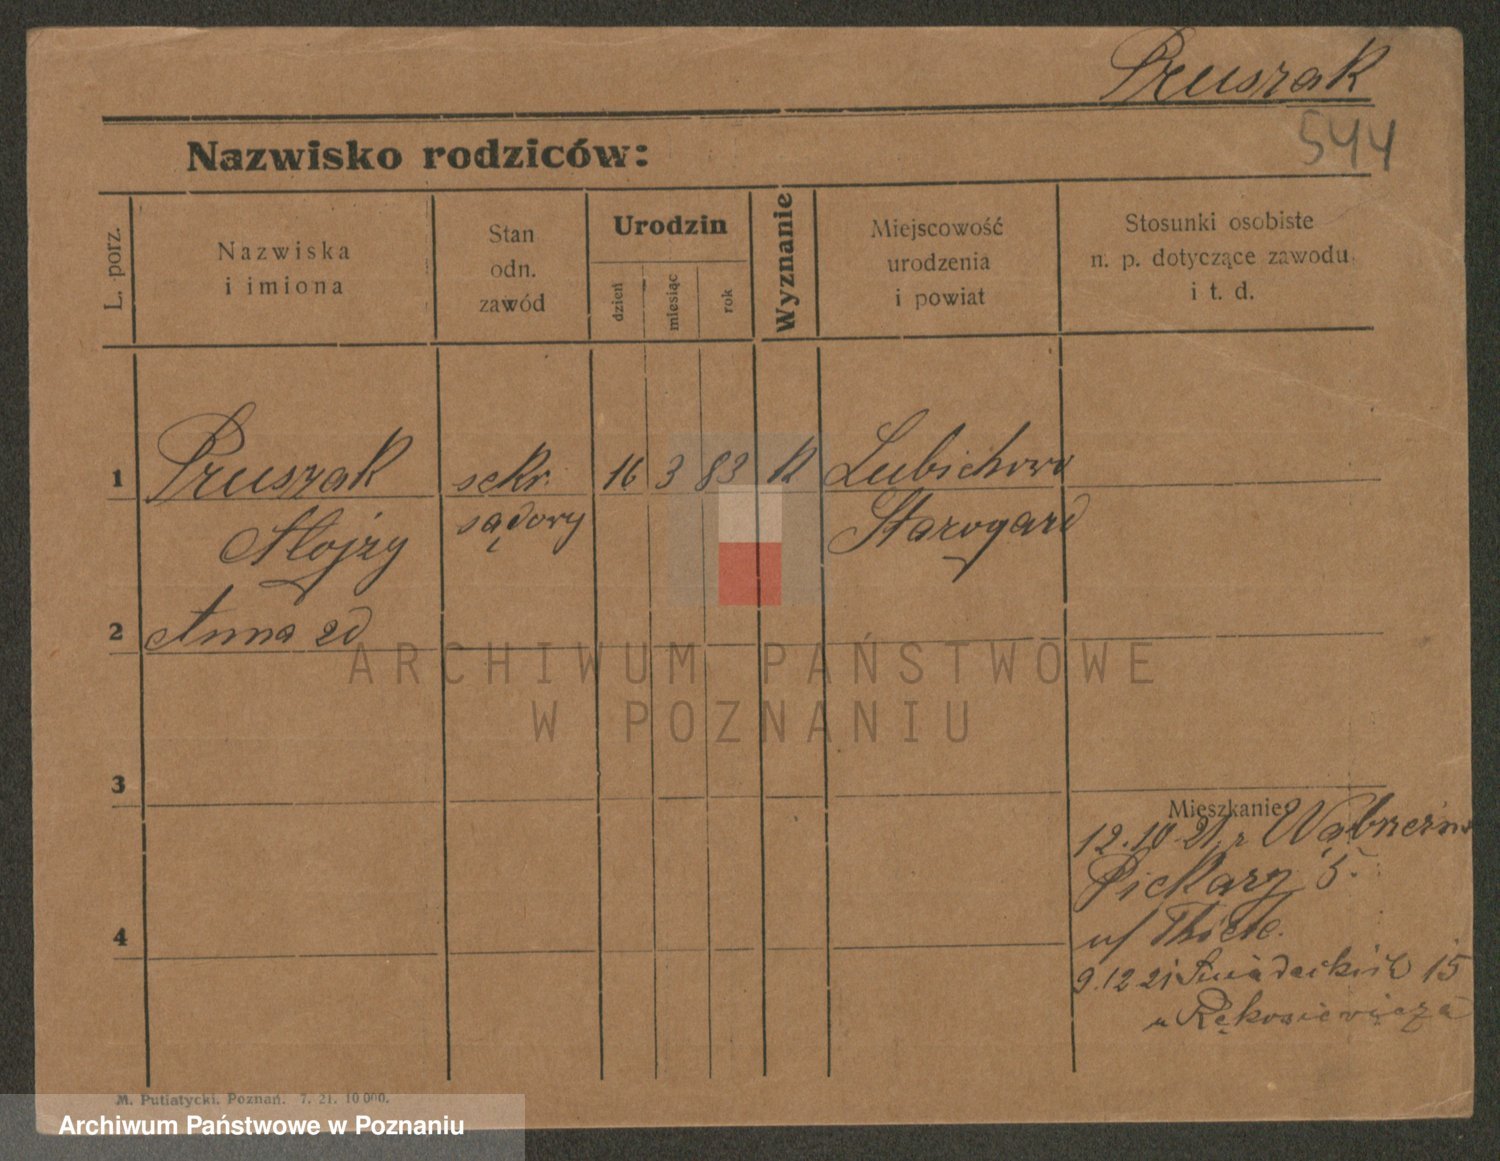 Pruszak
544
Nazwisko rodziców:
L. porz.
Nazwiska
i imiona
Stan
odn.
zawód
Urodzin
dzień
miesiąc
rok
Wyznanie
Miejscowość
urodzenia
i powiat
Stosunki osobiste
n. p. dotyczące zawodu
i t. d.
1
Pruszak
Alojzy
sekr.
sądowy
16 3 83
K
Lubichowo
Starogard
2
Anna
3
4
Mieszkanie
12.10.21 z Wąbrzeźno
Piekary 5.
u/ Thiele.
9.12.21 Śniadeckich 15
u Rękosiewicza
M. Putiatycki. Poznań. 7. 21. 10 000.
ARCHIWUM PAŃSTWOWE
W POZNANIU
Archiwum Państwowe w Poznaniu